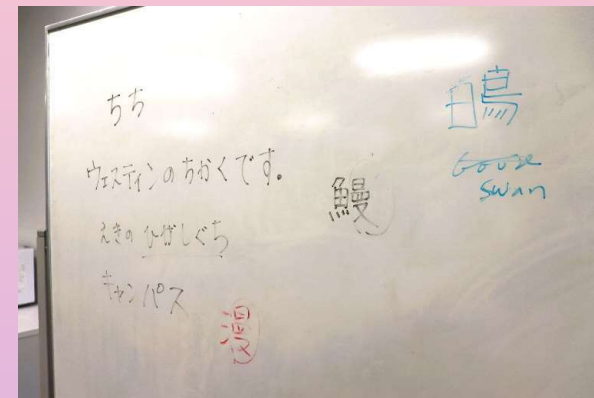 ちち
ウェスティンのちかくです。
えきの ひがしぐち
キャンパス
鰻
白鳥
Goose
Swan